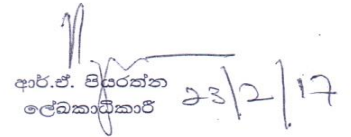 ආර්.ඒ. පියරත්න
ලේඛකාධිකාරී 23/2/17